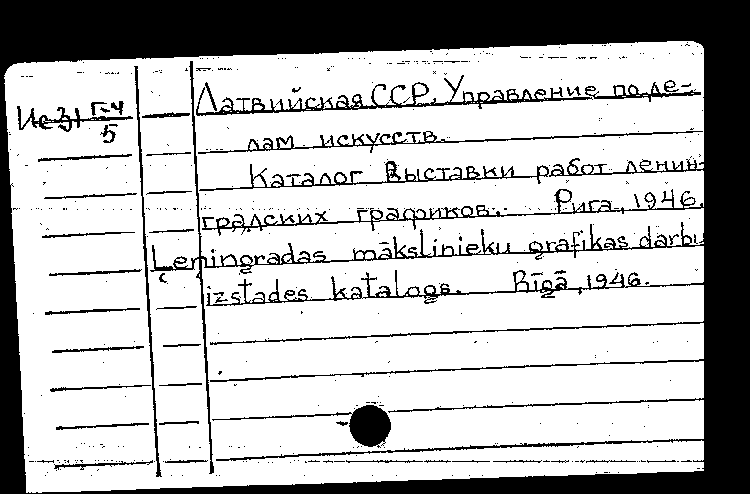 Ис31 Г-4
5
Латвийская ССР. Управление по де-
лам искусств.
Каталог выставки работ ленин-
градских графиков.- Рига, 1946.
Leningradas mākslinieku grafikas darbu
izstādes katalogs. Rīgā, 1946.